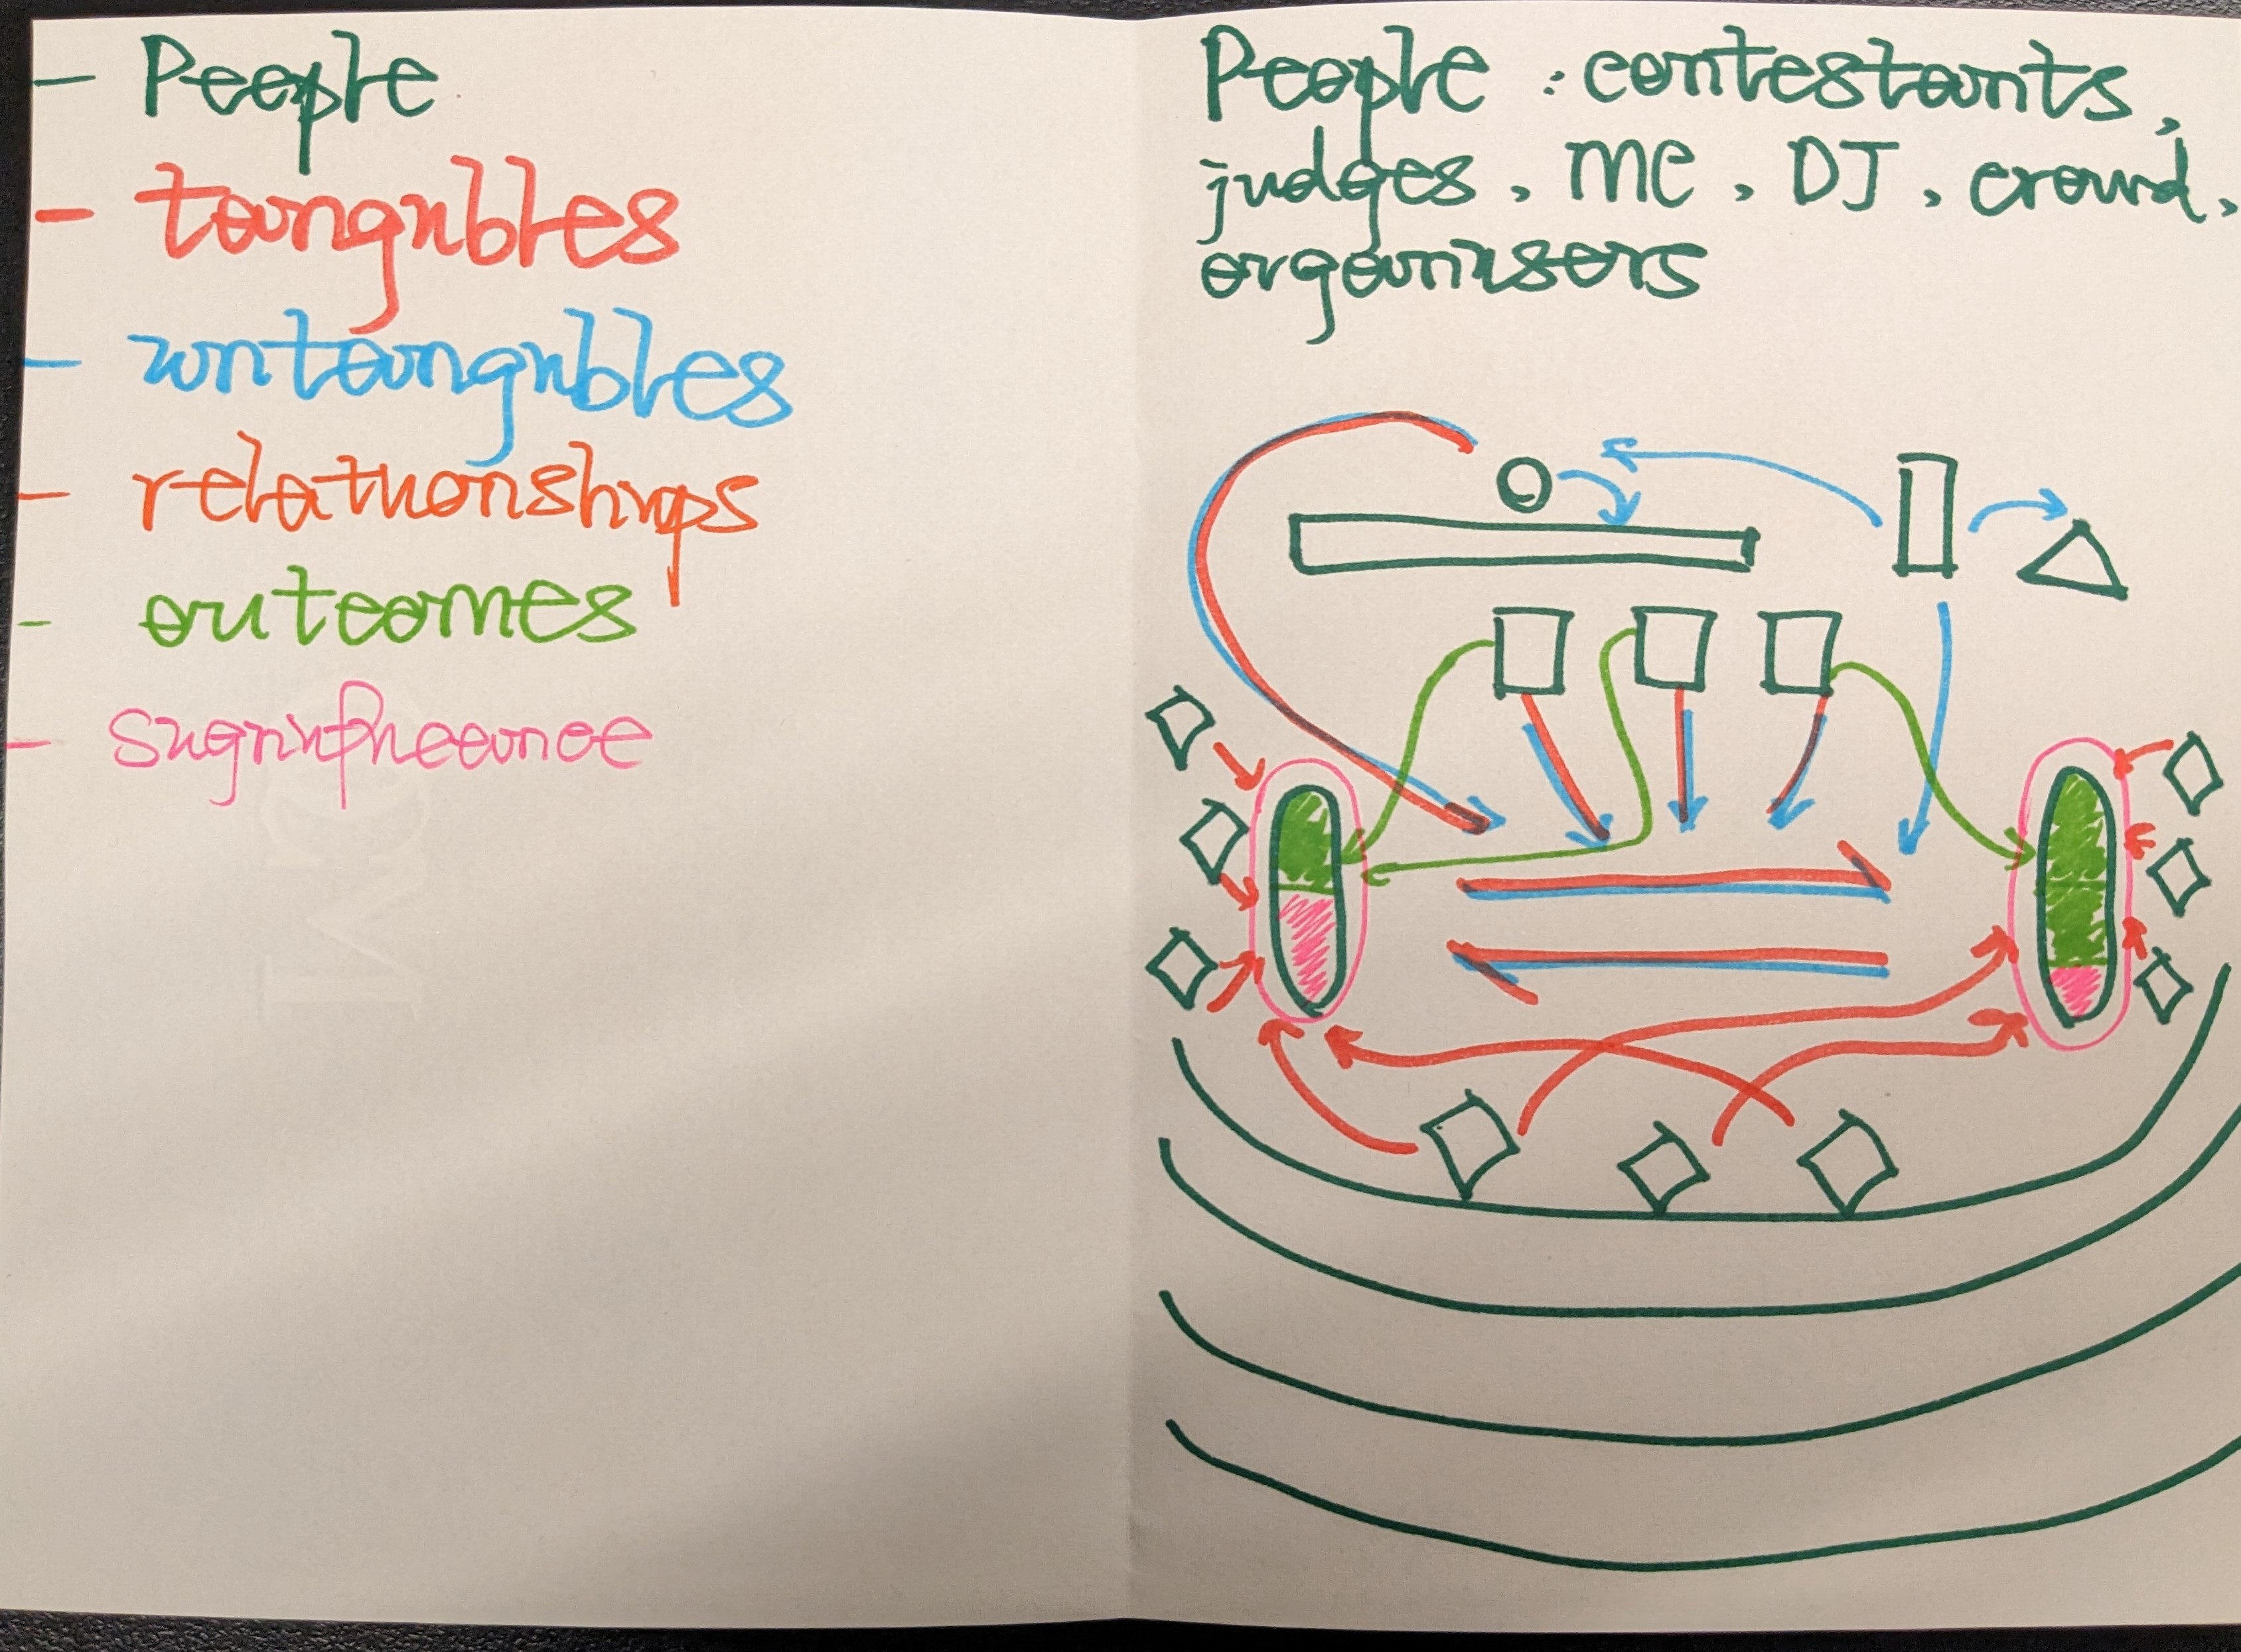 - People
- tangibles
- intangibles
- relationships
- outcomes
- significance
People : contestants,
judges, MC, DJ, crowd,
organisers